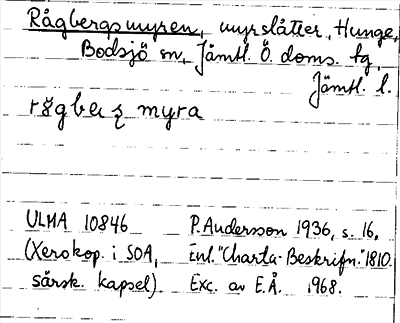 Rågbergsmyren, myrslåtter, Hunge,
Bodsjö sn, Jämtl. Ö. doms. tg,
Jämtl. l.
myra
ULMA 10846 P. Andersson 1936, s. 16,
(Xerokop. i SOA, Enl. "Charta-Beskrifn." 1810.
särsk. kapsel) Exc. av E.Å. 1968.